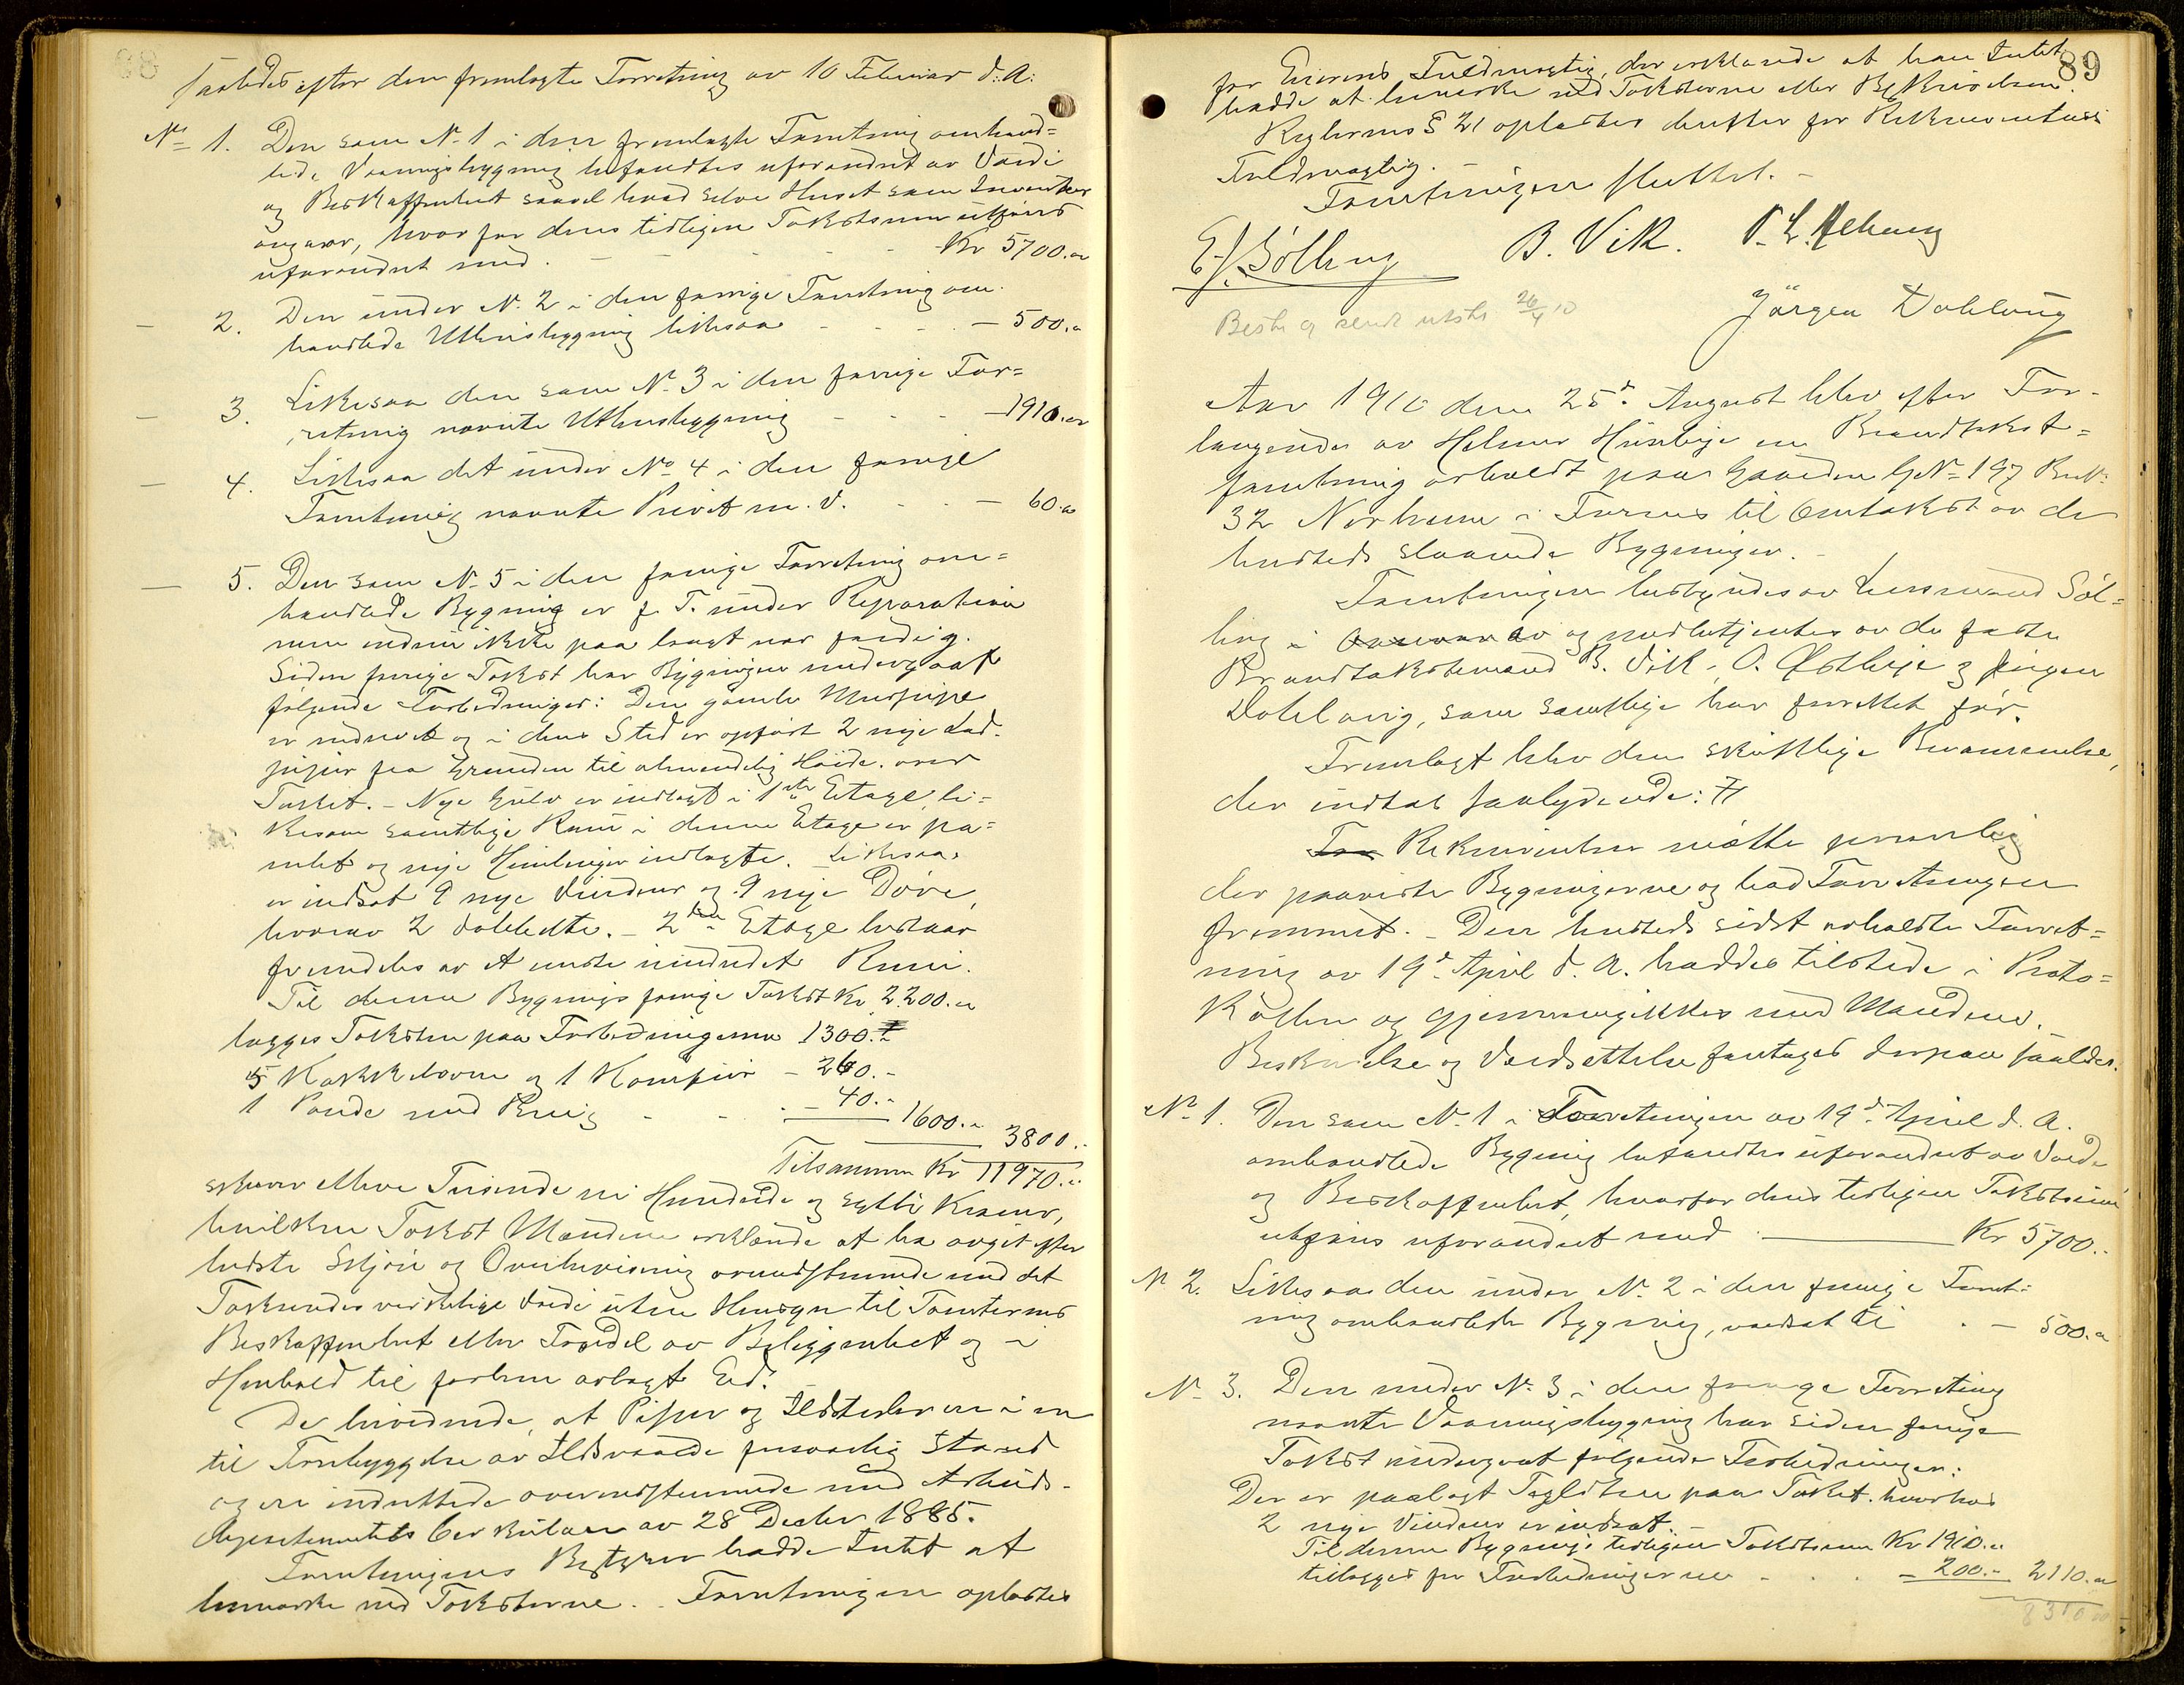 saaledes efter den fremlagte Forretning av 10 Februar d. A:
No 1. Den som No 1 i den fremlagte Forretning omhand=
lede Vaaningsbygning befandtes uforandret av Værdi
og Beskaffenhet saavel hvad selve Huset som Inventar
angaar, hvorfor dens tidligere Takstsum utføres
uforandret med - - - Kr 5700.00
— 2. Den under No 2 i den forrige Forretning om-
handlede Uthusbygning likesaa - - - — 500.00
— 3. Likesaa den som No 3 i den forrige For=
retning nævnte Uthusbygning - - - — 1910.00
— 4. Likesaa det under No 4 i den forrige
Forretning nævnte Privet m. v. - - — 60.00
— 5. Den som No 5 i den forrige Forretning om=
handlede Bygning er f. T. under Reparation
men endnu ikke paa langt nær færdig.
Siden forrige Takst har Bygningen undergaat
følgende Forbedringer: Den gamle Murpipe
er nedrevet og i dens Sted er opført 2 nye
piper fra Grunden til almindelig Høide over
Taket. - Nye Gulv er indlagt i 1ste Etage, li=
kesom samtlige Rum i denne Etage er pa=
nelet og nye Himlinger indlagte. Likesaa
er indsat 9 nye Vinduer og 9 nye Døre,
hvorav 2 dobbelte. - 2den Etage bestaar
fremdeles av et eneste uindredet Rum.
Til denne Bygnings forrige Takst Kr 2200.00
lægges Taksten paa Forbedringerne 1300.-
5 Kakkelovne og 1 Komfur - 260.-
1 Pande med Muring - - - 40.-
1600.- 3800.-
Tilsammen Kr 11970.00
skriver elleve Tusinde ni Hundrede og sytti Kroner,
hvilken Takst Mændene erklærte at ha avgit efter
bedste Skjøn og Overbevisning overensstemmende med det
Taksertes virkelige Værdi uten Hensyn til Tomternes
Beskaffenhet eller Fordel av Beliggenhet og i
Henhold til forhen avlagt Ed.
De bevidnede, at Piper og Ildsteder er i en
til Forebyggelse av Ildsvaade forsvarlig Stand
og er indrettede overensstemmende med Arbeids-
departementets Cirkulære av 28 Decbr 1885.
Forretningens Bestyrer hadde Intet at
bemærke ved Taksterne. - Forretningen oplæstes
89
for Eierens Fuldmægtig, der erklærede at han Intet
hadde at bemerke ved Taksterne eller Beskrivelsen.
Reglernes § 21 oplæstes derefter for Rekvirentens
Fuldmægtig. -
Forretningen sluttet. -
E. J. Sølling B. Vik.
Jörgen Dohlang
Besk. og sendt utskr. 26/4 10
Aar 1910 den 25de August blev efter For-
langende av Helmer Husebye en Brandtakst=
forretning avholdt paa Gaarden GNo 197 BrNo
32 i til Omtakst av de
hersteds staaende Bygninger. -
Forretningen bestyredes av Lensmand Söl=
ling og medbetjentes av de faste
Brandtakstmænd B. Vik, O. Østbye og Jørgen
Dohlang, som samtlige har forrettet før.
Fremlagt blev den skriftlige Rekvisition,
der indtas saalydende: #
Rekvirenten møtte personlig
der paaviste Bygningerne og bad Forretningen
fremmet. - Den hersteds sidst avholdte Forret=
ning av 19de April d. A. haddes tilstede i Proto=
kollen og gjennemgikkes med Mændene.
Beskrivelse og Værdsættelse foretages derpaa saaledes:
No 1. Den som No 1 i Forretningen av 19de April d. A.
omhandlede Bygning befandtes uforandret av Værdi
og Beskaffenhet, hvorfor dens tidligere Takstsum
utføres uforandret med — Kr 5700.-
No 2. Likesaa den under No 2 i den forrige Forret=
ning omhandlede Bygning, værdsat til - — 500.00
No 3. Den under No 3 i den forrige Forretning
nævnte Vaaningsbygning har siden forrige
Takst undergaat følgende Forbedringer:
Der er paalagt Taglsten paa Taket, hvorhos
2 nye Vinduer er indsat. -
Til denne Bygnings tidligere Takstsum Kr 1910.00
tillægges for Forbedringerne - - - 200.- 2110.00
8310.00